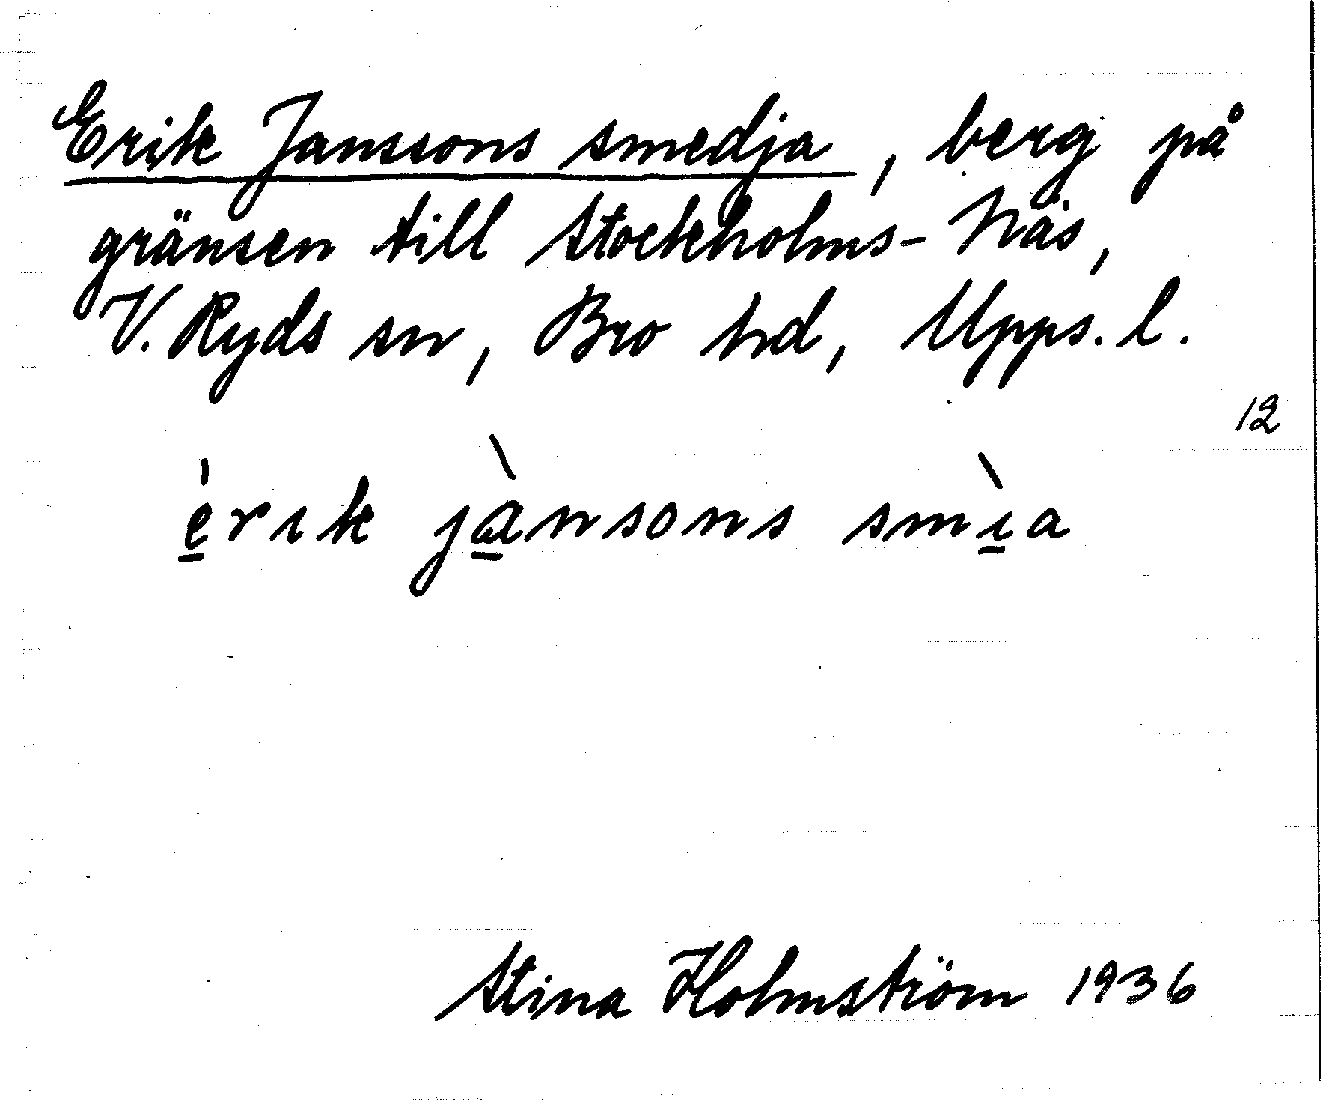 Erik Janssons smedja, berg på
gränsen till Stockholms-Näs,
V. Ryds sn, Bro hd, Upps. l.
12
è̱rık jà̱nsons smı̱̀a
Stina Holmström 1936